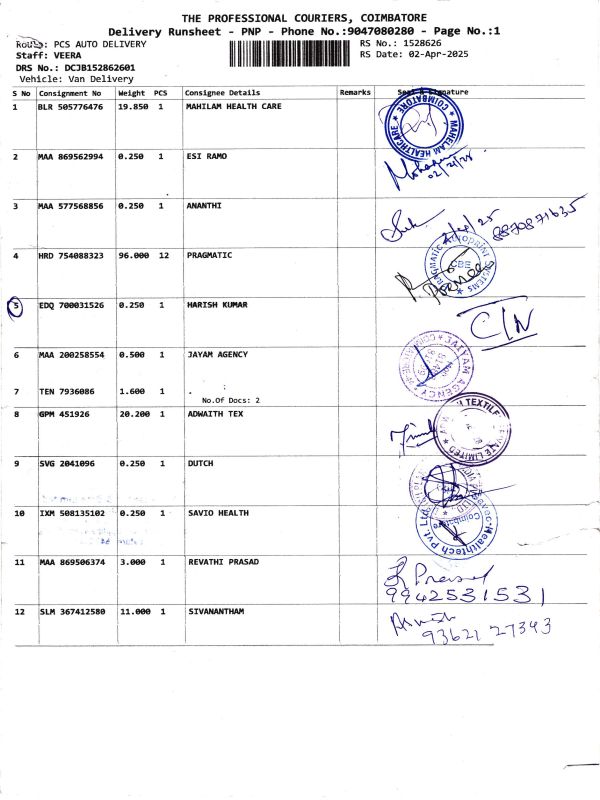 THE PROFESSIONAL COURIERS, COIMBATORE
Delivery Runsheet - PNP - Phone No.:9047080280 - Page No.:1
Route: PCS AUTO DELIVERY
RS No.: 1528626
Staff: VEERA
RS Date: 02-Apr-2025
DRS No.: DCJB152862601
Vehicle: Van Delivery
S No Consignment No Weight PCS Consignee Details Remarks Seal & Signature
1 BLR 505776476 19.850 1 MAHILAM HEALTH CARE
MAHELAM HEALTHCARE COIMBATORE
2 MAA 869562994 0.250 1 ESI RAMO
3 MAA 577568856 0.250 1 ANANTHI
8870871635
4 HRD 754088323 96.000 12 PRAGMATIC
PRAGMATIC AUTOPRINT SYSTEMS
CBE
5 EDQ 700031526 0.250 1 HARISH KUMAR
C/N
6 MAA 200258554 0.500 1 JAYAM AGENCY
JAIYAM AGENCY
7 TEN 7936086 1.600 1 .
No.Of Docs: 2
8 GPM 451926 20.200 1 ADWAITH TEX
TEXTILE PRIVATE LIMITED
9 SVG 2041096 0.250 1 DUTCH
10 IXM 508135102 0.250 1 SAVIO HEALTH
Healthtech Pvt. Ltd.
Coimbatore
11 MAA 869506374 3.000 1 REVATHI PRASAD
R Prasad
9942531531
12 SLM 367412580 11.000 1 SIVANANTHAM
93621 27343